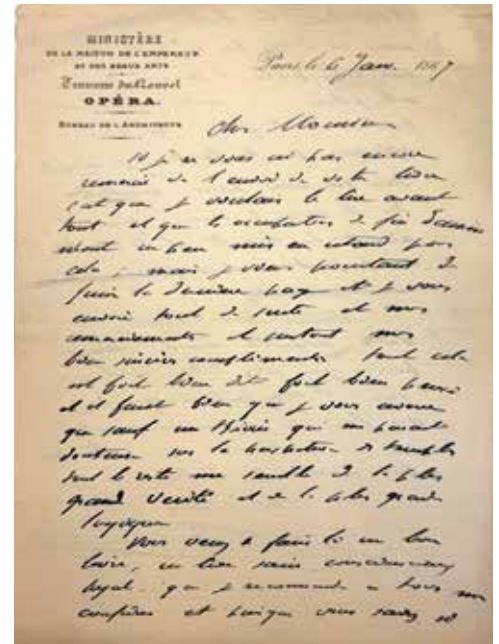 MINISTÈRE
DE LA MAISON DE L'EMPEREUR
ET DES BEAUX ARTS
Travaux du Nouvel
OPÉRA.
BUREAU DE L'ARCHITECTE
Paris, le 6 Janv. 1867
Cher Monsieur
Si je ne vous ai pas encore
remercié de l'envoi de votre livre
c'est que je voulais le lire avant
tout et que les occupations de fin d'année
m'ont un peu mis en retard pour
cela ; mais je viens pourtant de
finir la dernière page et je vous
envoie tout de suite et mes
remerciements et surtout mes
bien sincères compliments Tout cela
est fort bien dit fort bien pensé
et il faut bien que je vous avoue
que sauf un qui me parait
douteuse sur la des temples
tout le reste me semble de la plus
grande vérité et de la plus grande
logique
Vous venez de faire là un bon
livre, un livre sain consciencieux
loyal que je recommande à tous mes
confrères et puisque vous savez si